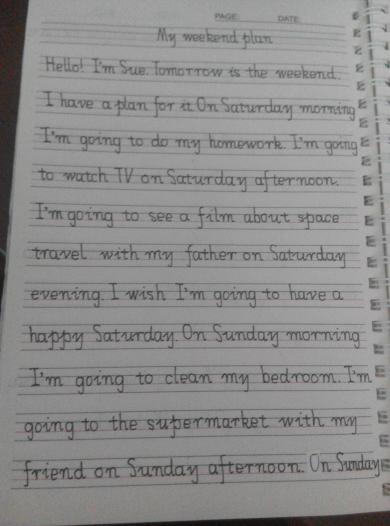 PAGE: DATE:
My weekend plan
Hello! I'm Sue. Tomorrow is the weekend.
I have a plan for it. On Saturday morning
I'm going to do my homework. I'm going
to watch TV on Saturday afternoon.
I'm going to see a film about space
travel with my father on Saturday
evening. I wish I'm going to have a
happy Saturday. On Sunday morning
I'm going to clean my bedroom. I'm
going to the supermarket with my
friend on Sunday afternoon. On Sunday